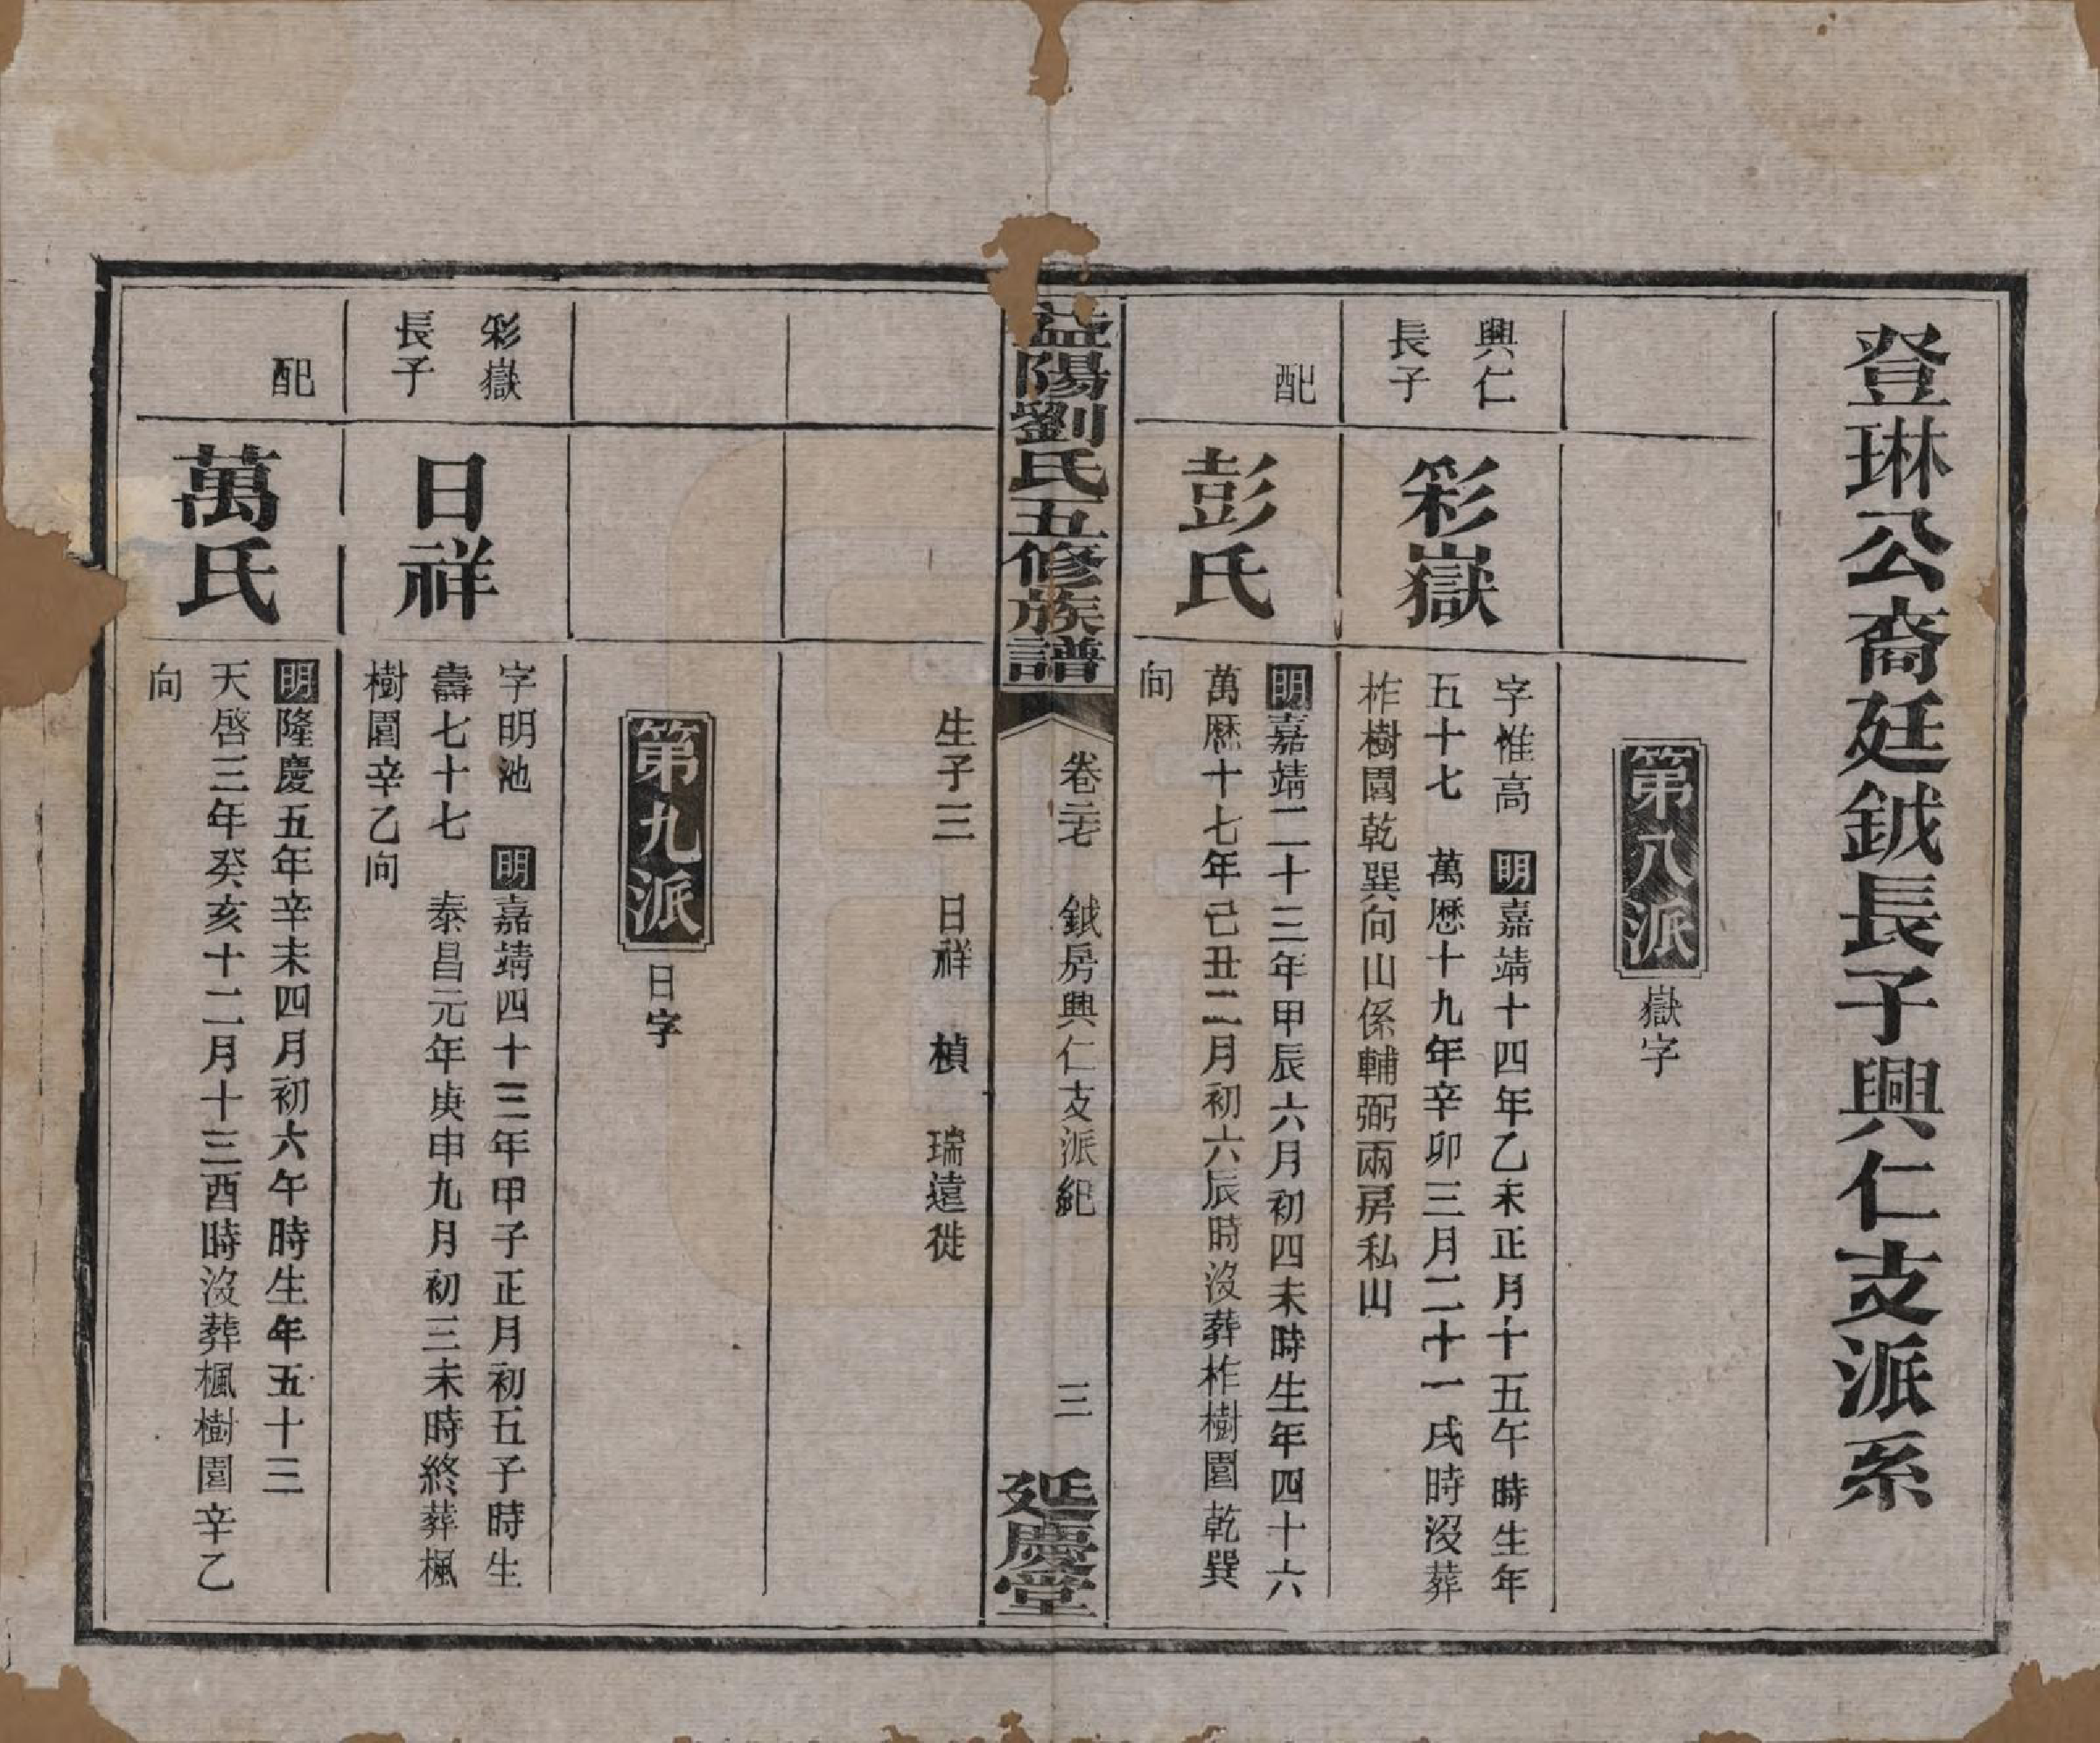 登琳公裔廷鉞長子興仁支派系
第八派 嶽字
興仁
長子
彩嶽
字惟高 明嘉靖十四年乙未正月十五午時生年
五十七 萬歷十九年辛卯三月二十一戌時沒葬
柞樹園乾巽向山係輔弼兩房私山
配
彭氏
明嘉靖二十三年甲辰六月初四未時生年四十六
萬歷十七年己丑二月初六辰時沒葬柞樹園乾巽
向
益陽劉氏五修族譜
卷二十七 鉞房興仁支派紀 三
延慶堂
生子三 日祥 楨 瑞遠徙
第九派 日字
彩嶽
長子
日祥
字明池 明嘉靖四十三年甲子正月初五子時生
壽七十七 泰昌元年庚申九月初三未時終葬楓
樹園辛乙向
配
萬氏
明隆慶五年辛未四月初六午時生年五十三
天啓三年癸亥十二月十三酉時沒葬楓樹園辛乙
向